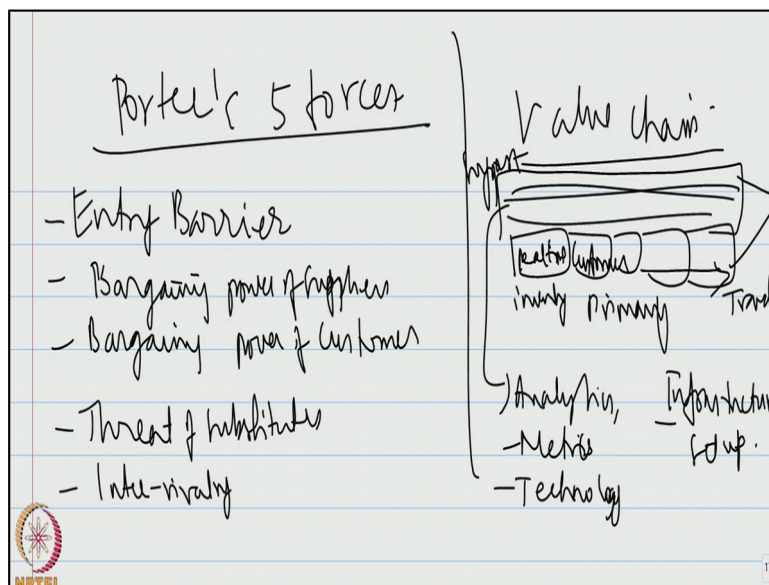 Porter's 5 forces
- Entry Barrier
- Bargaining power of suppliers
- Bargaining power of customer
- Threat of substitutes
- Inter-rivalry
Value chain
support
customer
primary
Analytics,
- Metrics
- Technology
NPTEL